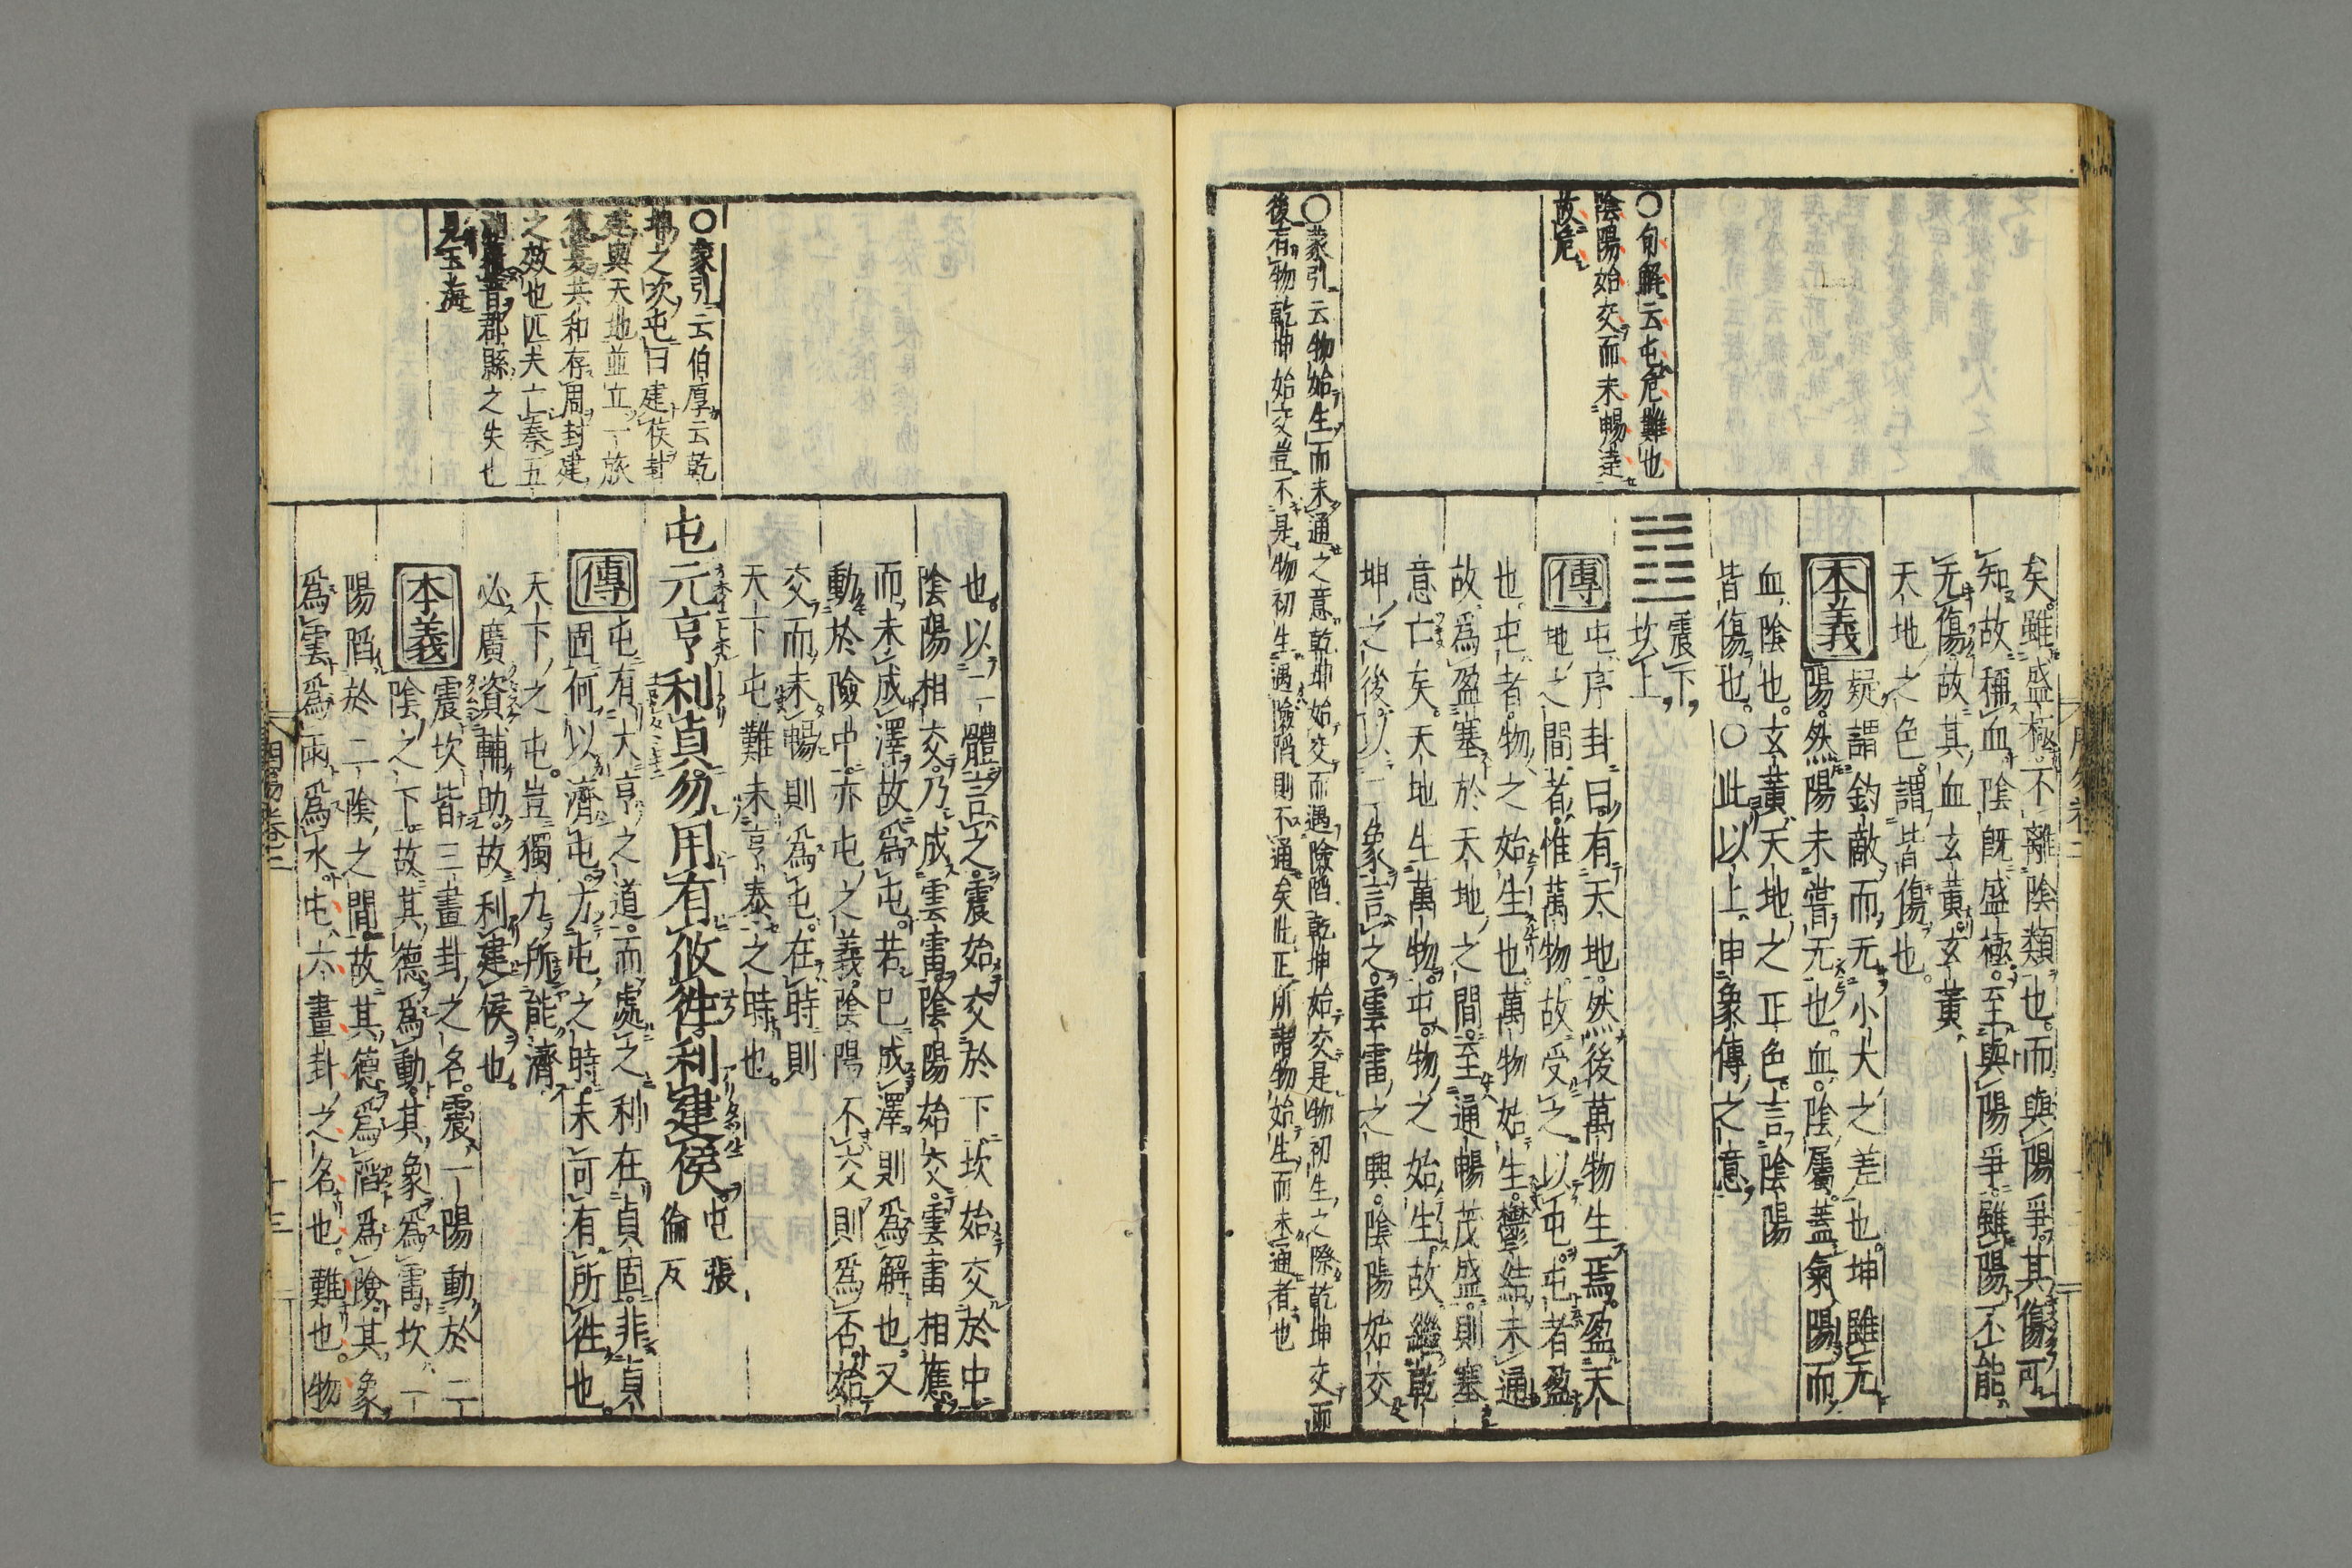 〇句解云屯危難也
陰陽始交而未暢達
故危
矣雖盛極不離陰類也而與陽爭其傷可
知故稱血陰既盛極至與陽爭雖陽不能
无傷故其血玄黃玄黃
天地之色謂皆傷也
本義
疑謂鈞敵而无小大之差也坤雖无
陽然陽未嘗无也血陰屬蓋氣陽而
血陰也玄黃天地之正色言陰陽
皆傷也〇此以上申象傳之意
䷂
震下
坎上
傳
屯序卦曰有天地然後萬物生焉盈天
地之間者惟萬物故受之以屯屯者盈
也屯者物之始生也萬物始生鬱結未通
故爲盈塞於天地之間至通暢茂盛則塞
意亡矣天地生萬物屯物之始生故繼乾
坤之後以二象言之雲雷之興陰陽始交
〇蒙引云物始生而未通之意乾坤始交而遇險陷乾坤始交是物初生之際乾坤交而
後有物乾坤始交豈不是物初生遇險陷則不通矣此正所謂物始生而未通者也
〇蒙引云伯厚云乾
坤之次屯曰建侯封
建與天地並立一旅
復夏共和存周封建
之效也匹夫亡秦五
胡覆晋郡縣之失也
見玉海
也以二體言之震始交於下坎始交於中
陰陽相交乃成雲雷陰陽始交雲雷相應
而未成澤故爲屯若已成澤則爲解也又
動於險中亦屯之義陰陽不交則爲否始
交而未暢則爲屯在時則
天下屯難未亨泰之時也
屯元亨利貞勿用有攸往利建侯
屯張
倫反
傳
屯有大亨之道而處之利在貞固非貞
固何以濟屯方屯之時未可有所往也
天下之屯豈獨力所能濟
必廣資輔助故利建侯也
本義
震坎皆三畫卦之名震一陽動於二
陰之下故其德爲動其象爲雷坎一
陽陷於二陰之間故其德爲陷爲險其象
爲雲爲雨爲水屯六畫卦之名也難也物
周易卷二
十三